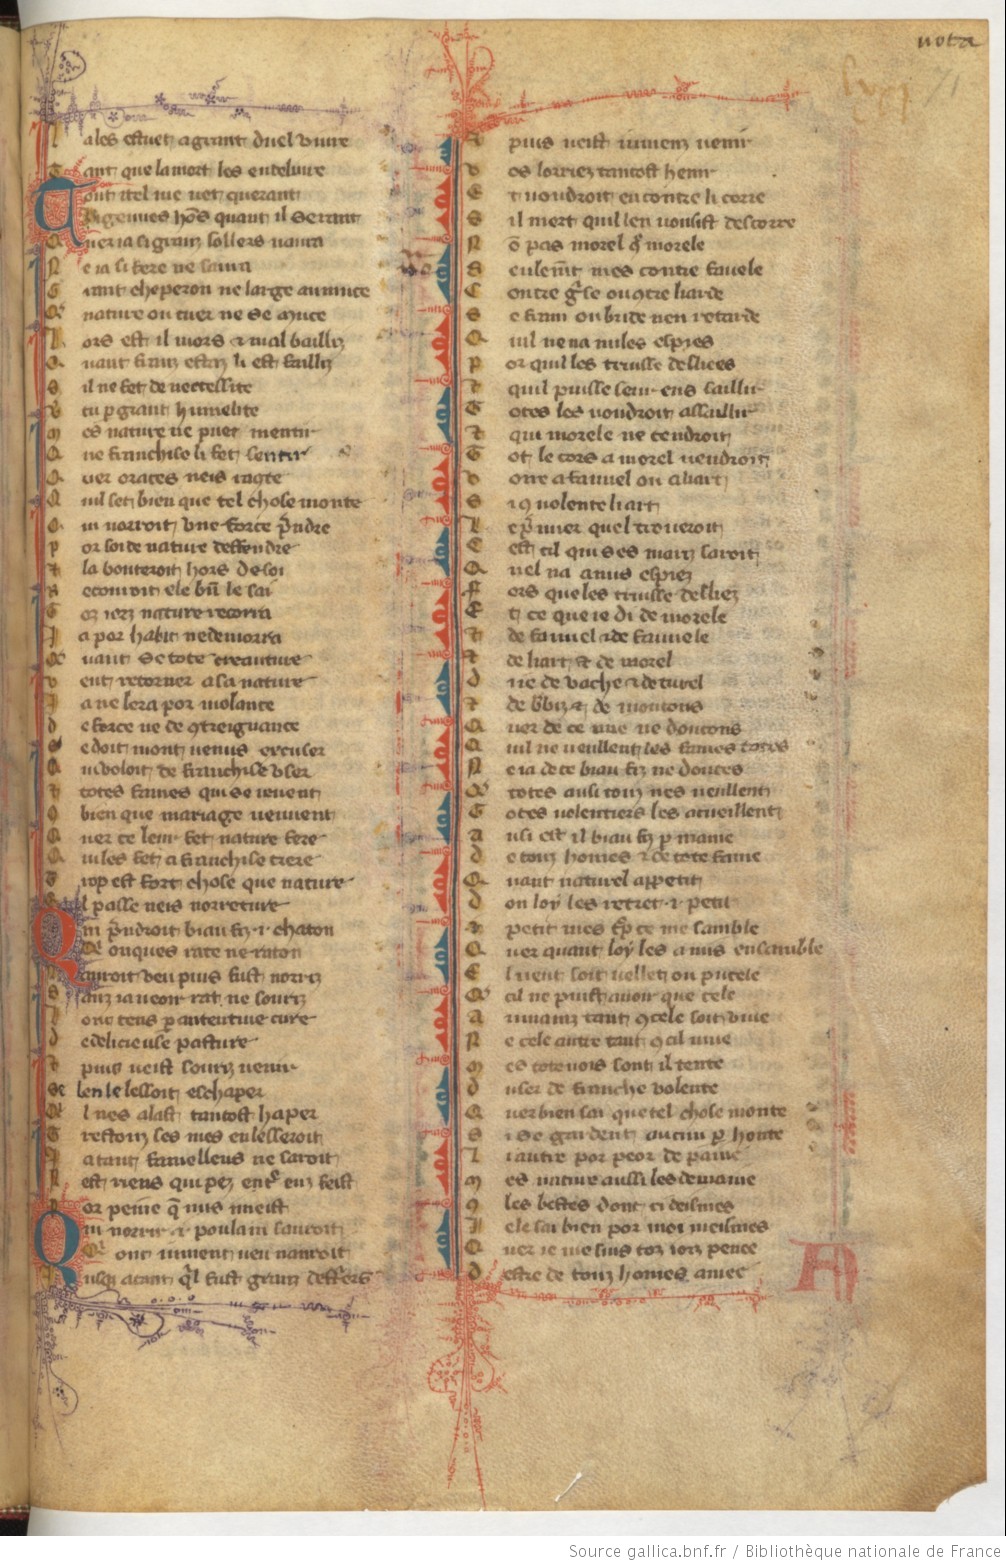 nota
lxxi 71
I ales estuet a grant duel vivre
T ant que la mort les en delivre
T out itel lue vet querant
I ligenues hõs quant il se rant
Q uer ia si granz sollers naura
N e ia si fere ne saura
G rant cheperon ne large aumuce
Q nature ou cuer ne se muce
L ors est il mors & mal bailliz
Q uant franz estaz li est failliz
S il ne fet de necessite
V tu p grant humelite
M es nature ne puet mentir
Q ue franchise li fet sentir
Q uer oraces neis racte
Q uil set bien que tel chose monte
Q ui vorroit une force pndre
P or soi de nature deffendre
T la bouteroit hors de soi
R
C or iert nature recorra
J a por habit ne demorra
Q vaut se tote creature
V eut retorner a sa nature
J a ne lera por violance
D e force ne de 9treignance
C e doit mont venus escuser
Q uvoloit de franchise user
T totes fames qui se veuent
O bien que mariage veuuent
Q uer ce leur fet nature fere
Q ui les fet a franchise trere
T rop est fort chose que nature
E l passe neis norreture
Q ui pndroit biau fiz .i. chaton
Q onques rate ne raton
N auroit veu puis fust norriz
S anz ia veoir rat ne souriz
L onc tens p antentive cure
D e delicieuse pasture
T puis veist souriz venir
Se len le lessoit eschaper
Q l nes alast tantost haper
T restoz ses mes en lesseroit
J a tant famelleus ne seroit
N est riens qui pez entr eux feist
P or peine q nus meist
Q ui norrir .i. poulain sauroit
Q onc iument veu nauroit
J usqu atant ql fust granz destriers
T puis veist iumenz venir
V os lorriez tantost henir
E t voudroit encontre li corre
S il niert quil len vousist descorre
N õ pas morel q morele
S eulemt mes contre favele
C ontre grise ou 9tre liarde
S e frain ou bride nen retarde
Q uil nena nules espies
P or quil les truisse deslices
T quil puisse seur ens saillir
T otes les voudroit assaillir
T qui morele ne tendroit
T ot le cors a morel vendroit
V oire a fauvel ou a liart
S i 9 volente li art
L e pmier quel troveroit
C est cil qui ses mariz seroit
Q uel na anus espiez
F ors que les truisse desliez
E t ce que ie di de morele
T de fauvel & de fauvele
T de liart & de morel
D ne de vache & de torel
T de bbiz & de moutons
Q uer de ce une ne doutons
Q uil ne veullent les fames totes
N e ia de ce biau fiz ne doutes
Q totes ausi touz nes veullent
T otes volentiers les acueillent
A usi est il biau fiz p mame
D e touz homes & de tote fame
Q uant naturel appetit
D on loy les retret .i. petit
.i. petit mes trop ce me samble
Q uer quant loy les a mis ensamble
E l veut soit vellet ou pucele
Q cil ne puist avoir que cele
A u mainz tant 9 cele soit vive
N e cele autre tant 9 cil vive
M es totevois sont il tente
D user de franche volente
Q uer bien sai que tel chose monte
S i se gardent aucun p honte
L i autre por peor de paine
M es nature aussi les demaine
9 les bestes dont ci deismes
J e le sai bien por moi meismes
Q uer ie me sius toz iorz pence
D estre de touz homes amee
Source gallica.bnf.fr / Bibliothèque nationale de France